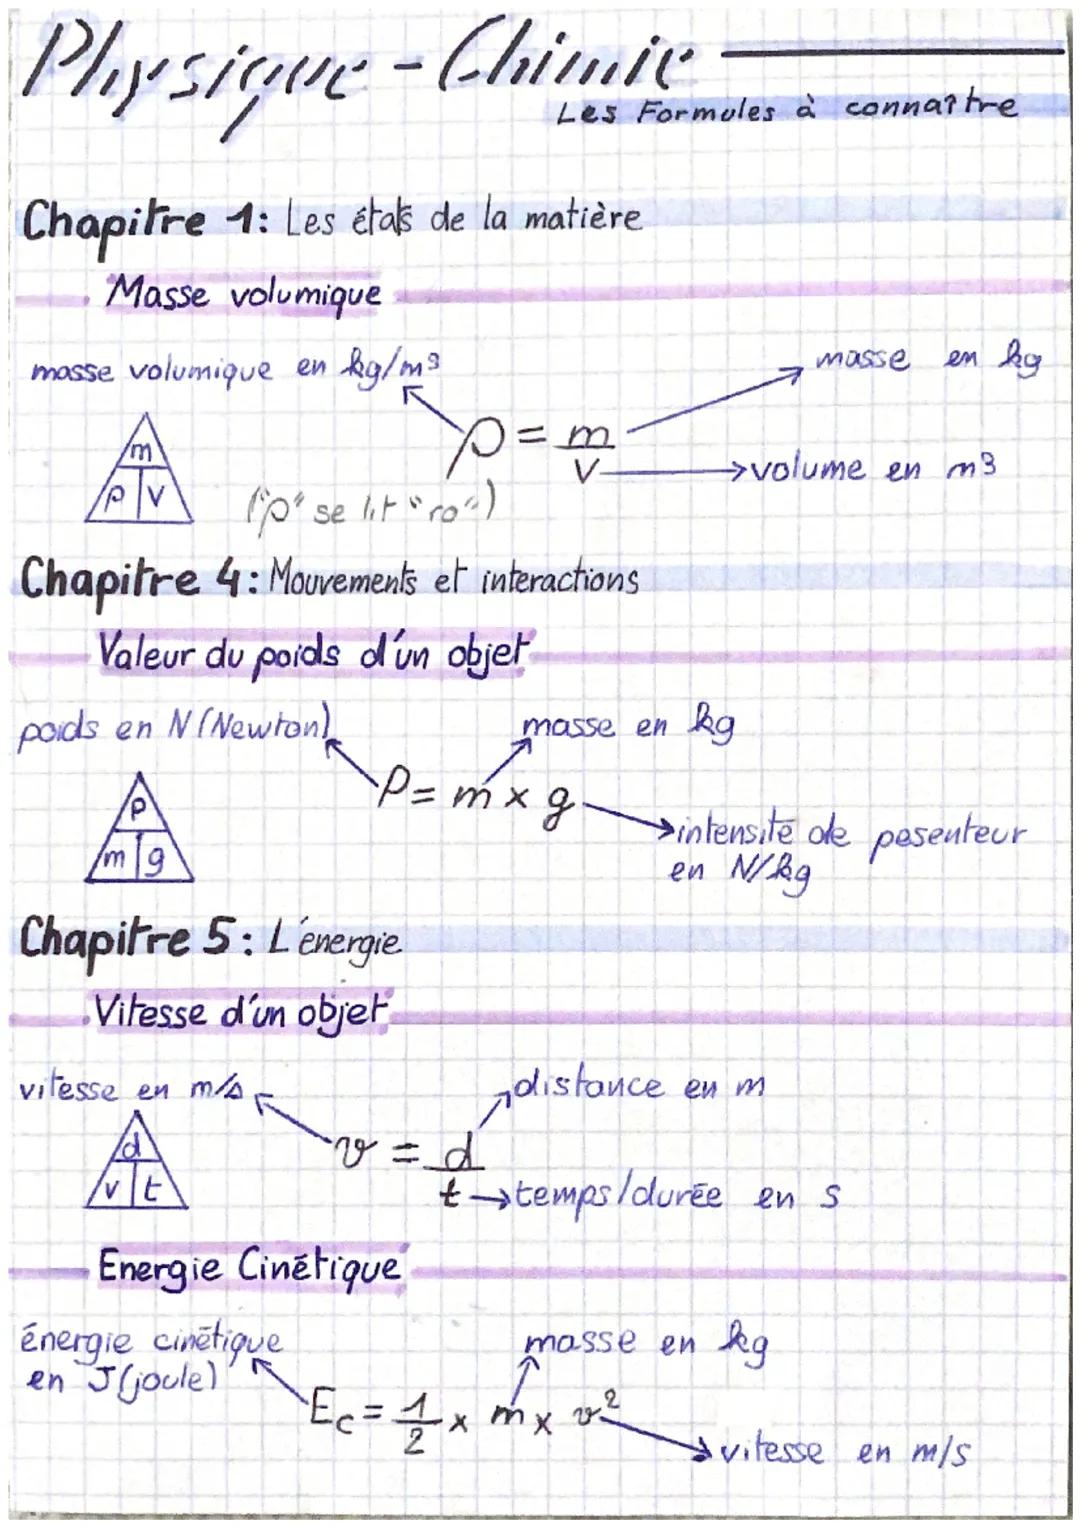 Physique - Chimie
Les Formules à connaître
Chapitre 1: Les états de la matière
Masse volumique
masse volumique en kg/m³
masse en kg
ρ = m/V
volume en m³
m
ρ V
("ρ" se lit "ro")
Chapitre 4: Mouvements et interactions
Valeur du poids d'un objet
poids en N (Newton)
masse en kg
P = m x g
intensité de pesenteur
en N/kg
P
m g
Chapitre 5: L'énergie
Vitesse d'un objet
vitesse en m/s
distance en m
v = d/t
temps/durée en s
d
v t
Energie Cinétique
énergie cinétique
en J (joule)
masse en kg
Ec = 1/2 x m x v²
vitesse en m/s